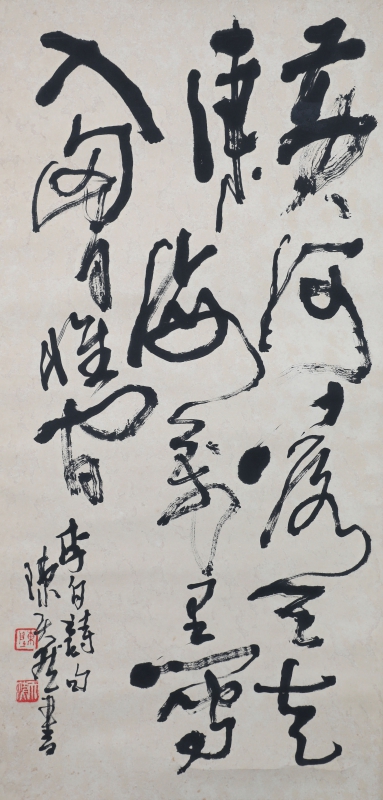 黃河落天走
東海萬里寫
入胸懷間
李白詩句
陳天然書